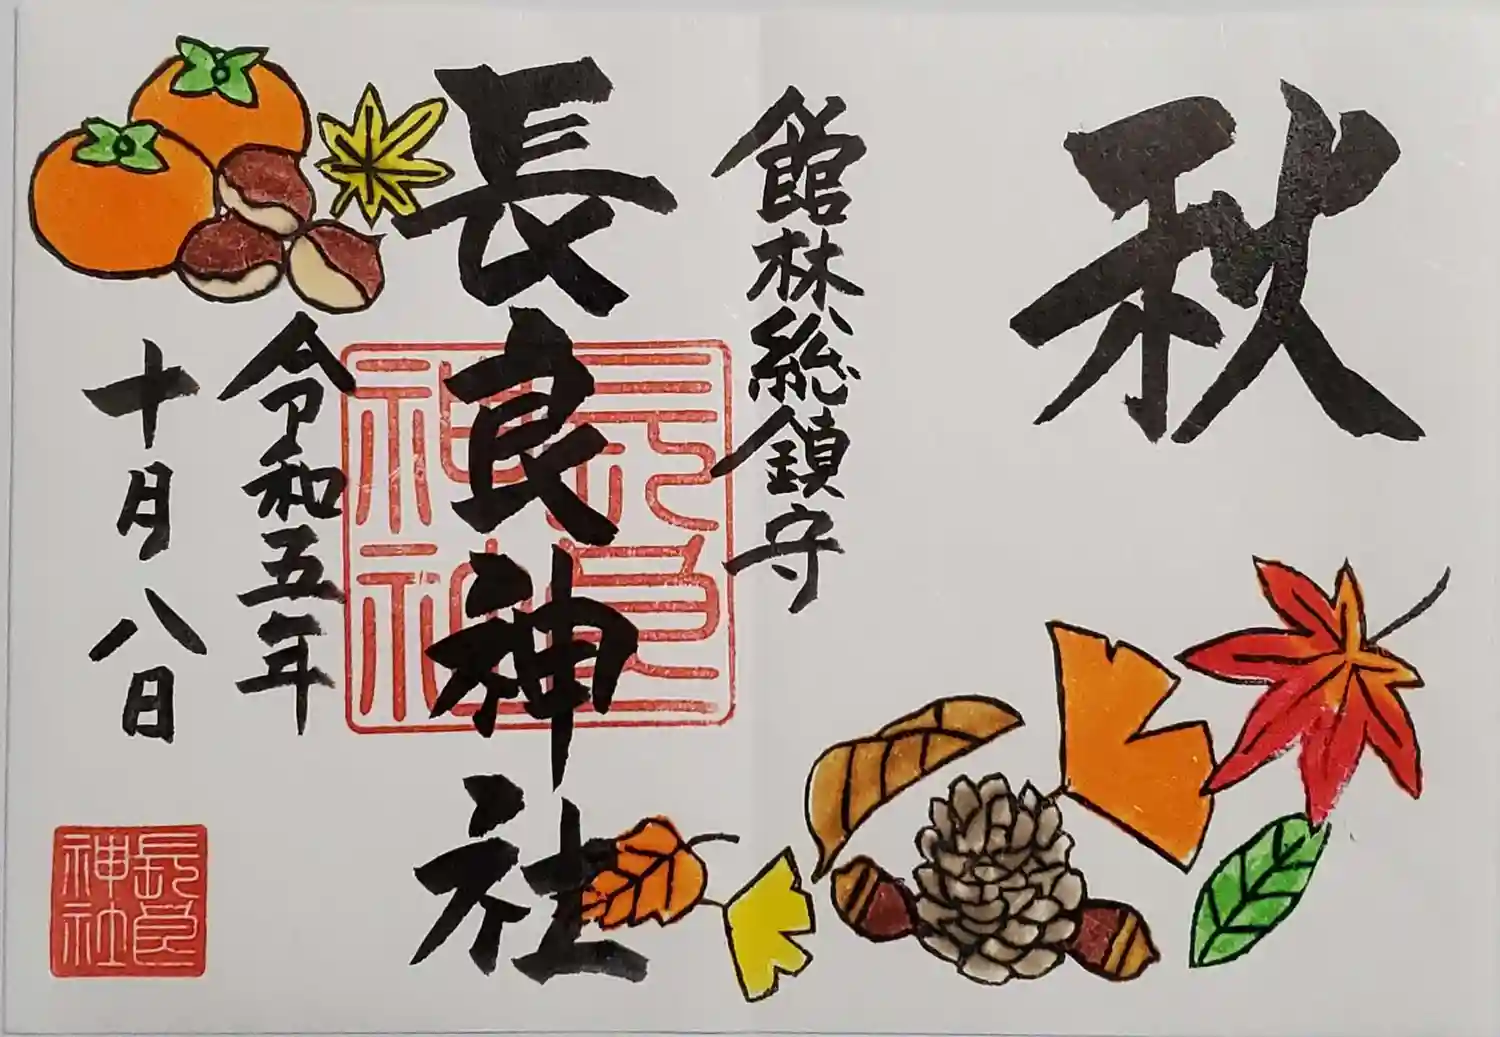 秋
館林総鎮守
長良神社
長良神社
令和五年
十月八日
長良神社